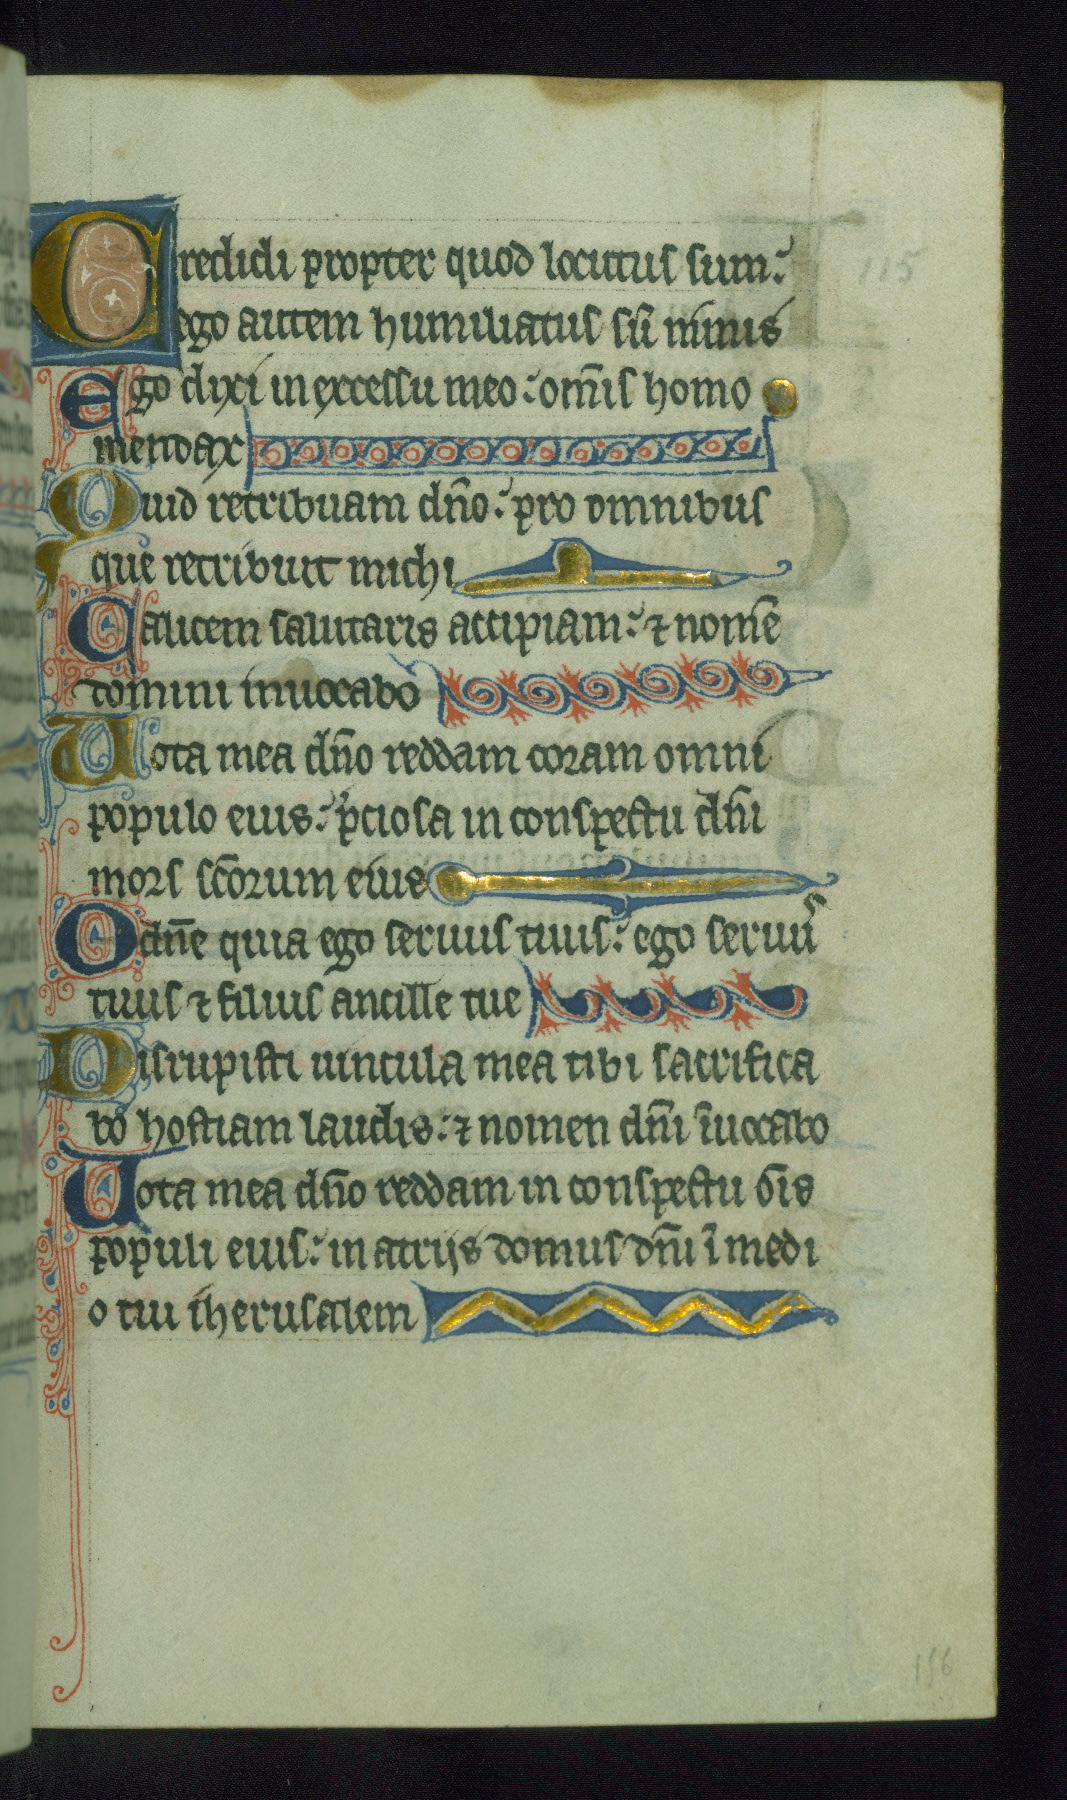 Credidi propter quod locutus sum: 115
ego autem humiliatus sū nimis
Ego dixi in excessu meo: om̄is homo
mendax
Quid retribuam dn̄o: pro omnibus
que retribuit michi
Calicem salutaris accipiam: ⁊ nom̄e
domini inuocabo
Uota mea dn̄o reddam coram omni
populo eius: p̄ciosa in conspectu dn̄i
mors sc̄orum eius
O dn̄e quia ego seruus tuus: ego seruuˢ
tuus ⁊ filius ancille tue
Disrupisti uincula mea tibi sacrifica
bo hostiam laudis: ⁊ nomen dn̄i īuocabo
Uota mea dn̄o reddam in conspectu om̄is
populi eius: in atrijs domus dn̄i ī medi
o tui iherusalem
156